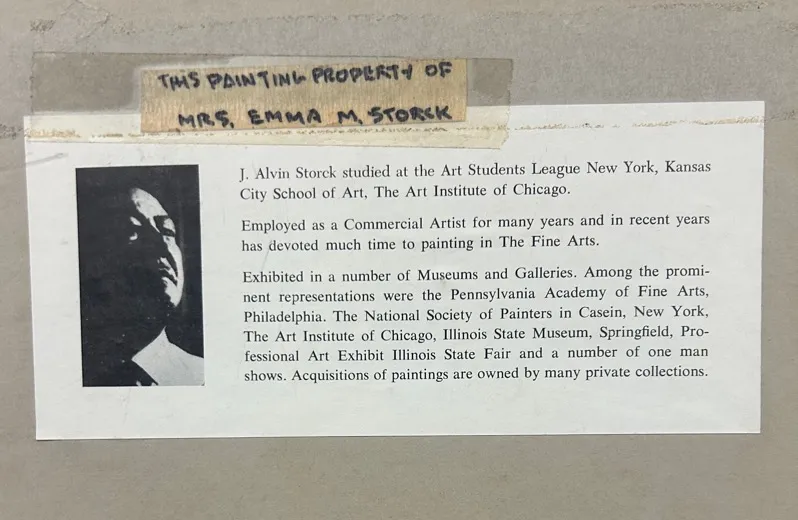 THIS PAINTING PROPERTY OF
MRS. EMMA M. STORCK
J. Alvin Storck studied at the Art Students League New York, Kansas
City School of Art, The Art Institute of Chicago.
Employed as a Commercial Artist for many years and in recent years
has devoted much time to painting in The Fine Arts.
Exhibited in a number of Museums and Galleries. Among the promi-
nent representations were the Pennsylvania Academy of Fine Arts,
Philadelphia. The National Society of Painters in Casein, New York,
The Art Institute of Chicago, Illinois State Museum, Springfield, Pro-
fessional Art Exhibit Illinois State Fair and a number of one man
shows. Acquisitions of paintings are owned by many private collections.